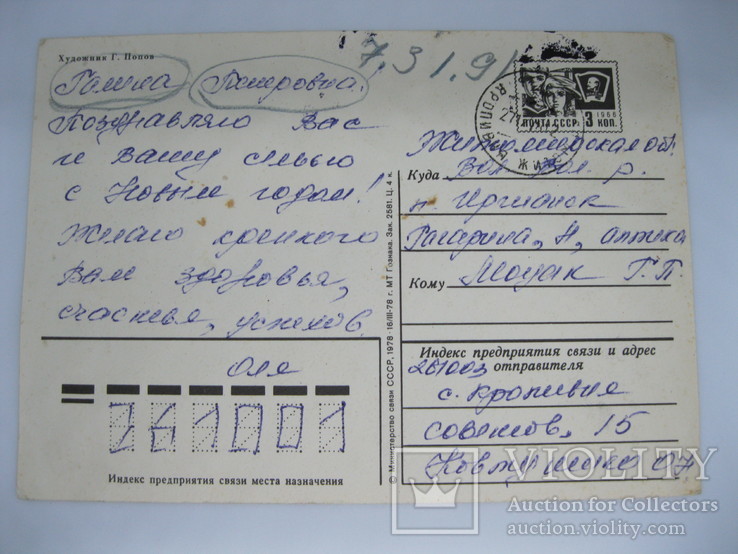 Художник Г. Попов
7.31.91
Галина
Поздравляю Вас
и Вашу семью
с Новым годом!
Желаю крепкого
Вам здоровья,
счастья, успехов.
Оля
261001
Индекс предприятия связи места назначения
© Министерство связи СССР, 1978 · 16/III-78 г. МТ Гознака. Зак. 2581. Ц. 4 к.
ПОЧТА СССР
1966
3 КОП.
Житомирская об.
Куда Вол. Вол. р.
Гагарина, аптека
Кому Моцак Г. П.
Индекс предприятия связи и адрес
отправителя
261003
с. Кропивня
советов, 15
VIOLITY
Auction for Collectors
auction.violity.com